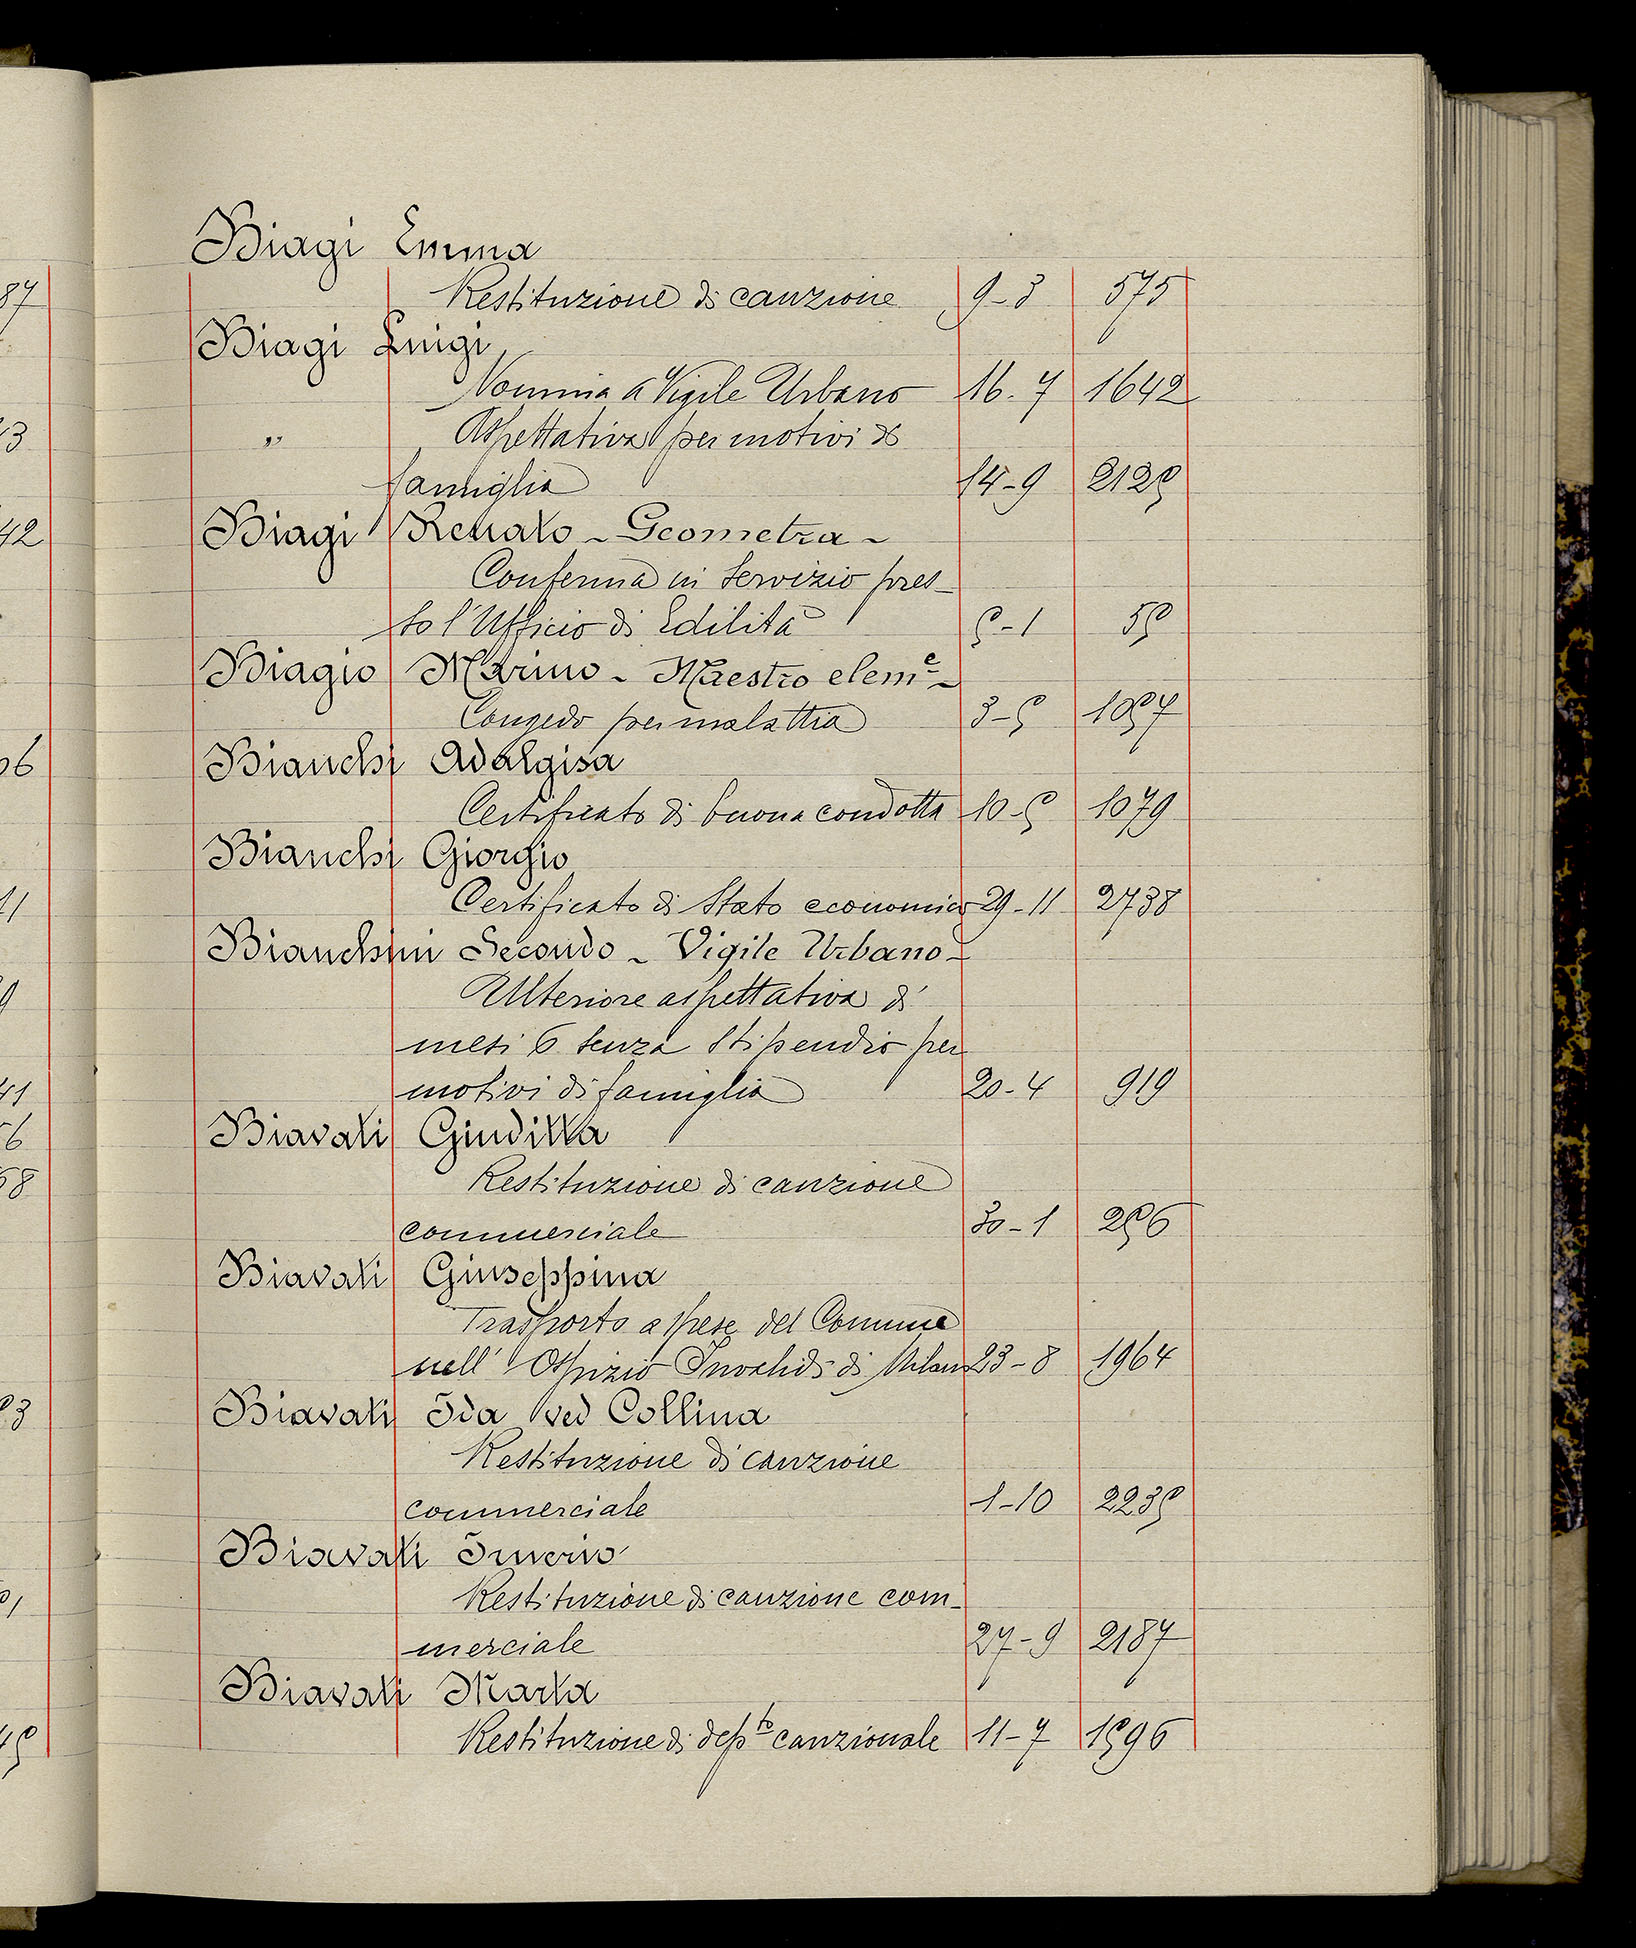 Biagi Emma
Restituzione di cauzione 9-3 575
Biagi Luigi
Nomina a Vigile Urbano 16-7 1642
" Aspettativa per motivi di
famiglia 14-9 2125
Biagi Renato - Geometra -
Conferma in servizio pres-
so l'Ufficio di Edilità 5-1 55
Biagio Marino - Maestro elem.e -
Congedo per malattia 3-5 1057
Bianchi Adalgisa
Certificato di buona condotta 10-5 1079
Bianchi Giorgio
Certificato di Stato economico 29-11 2738
Bianchini Secondo - Vigile Urbano -
Ulteriore aspettativa di
mesi 6 senza stipendio per
motivi di famiglia 20-4 919
Biavati Giuditta
Restituzione di cauzione
commerciale 30-1 256
Biavati Giuseppina
Trasporto a spese del Comune
nell'Ospizio Invalidi di Milano 23-8 1964
Biavati Ida ved Collina
Restituzione di cauzione
commerciale 1-10 2235
Biavati Imerio
Restituzione di cauzione com-
merciale 27-9 2187
Biavati Marta
Restituzione di depto cauzionale 11-7 1596